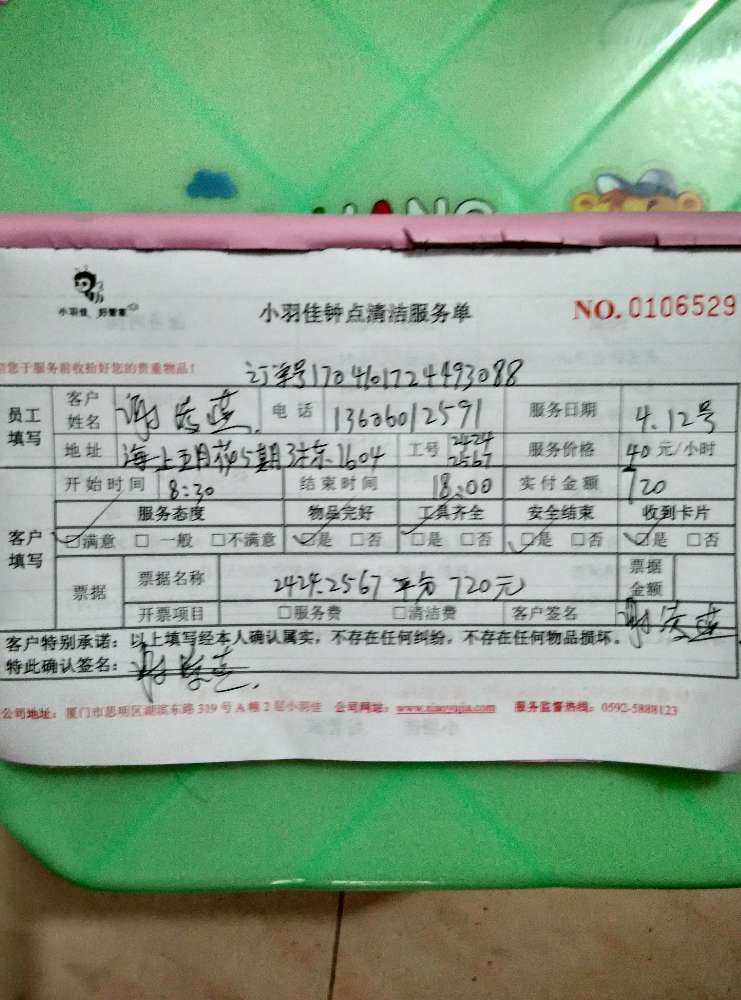 小羽佳,好管家
小羽佳钟点清洁服务单
NO.0106529
您于服务前收拾好您的贵重物品!
订单号170461724493088
员工填写 客户姓名 电话 13606012591 服务日期 4.12号
地址 海上五月花5期 1604 工号 2424 2567 服务价格 40元/小时
客户填写 开始时间 8:30 结束时间 18:00 实付金额 720
服务态度 物品完好 工具齐全 安全结束 收到卡片
☑满意 □一般 □不满意 ☑是 □否 ☑是 □否 ☑是 □否 ☑是 □否
票据 票据名称 2424.2567 平分 720元 票据金额
开票项目 □服务费 □清洁费 客户签名
客户特别承诺:以上填写经本人确认属实,不存在任何纠纷,不存在任何物品损坏。
特此确认签名:
公司地址:厦门市思明区湖滨东路319号A幢2层小羽佳 公司网址:www.xiaoyujia.com 服务监督热线:0592-5888123